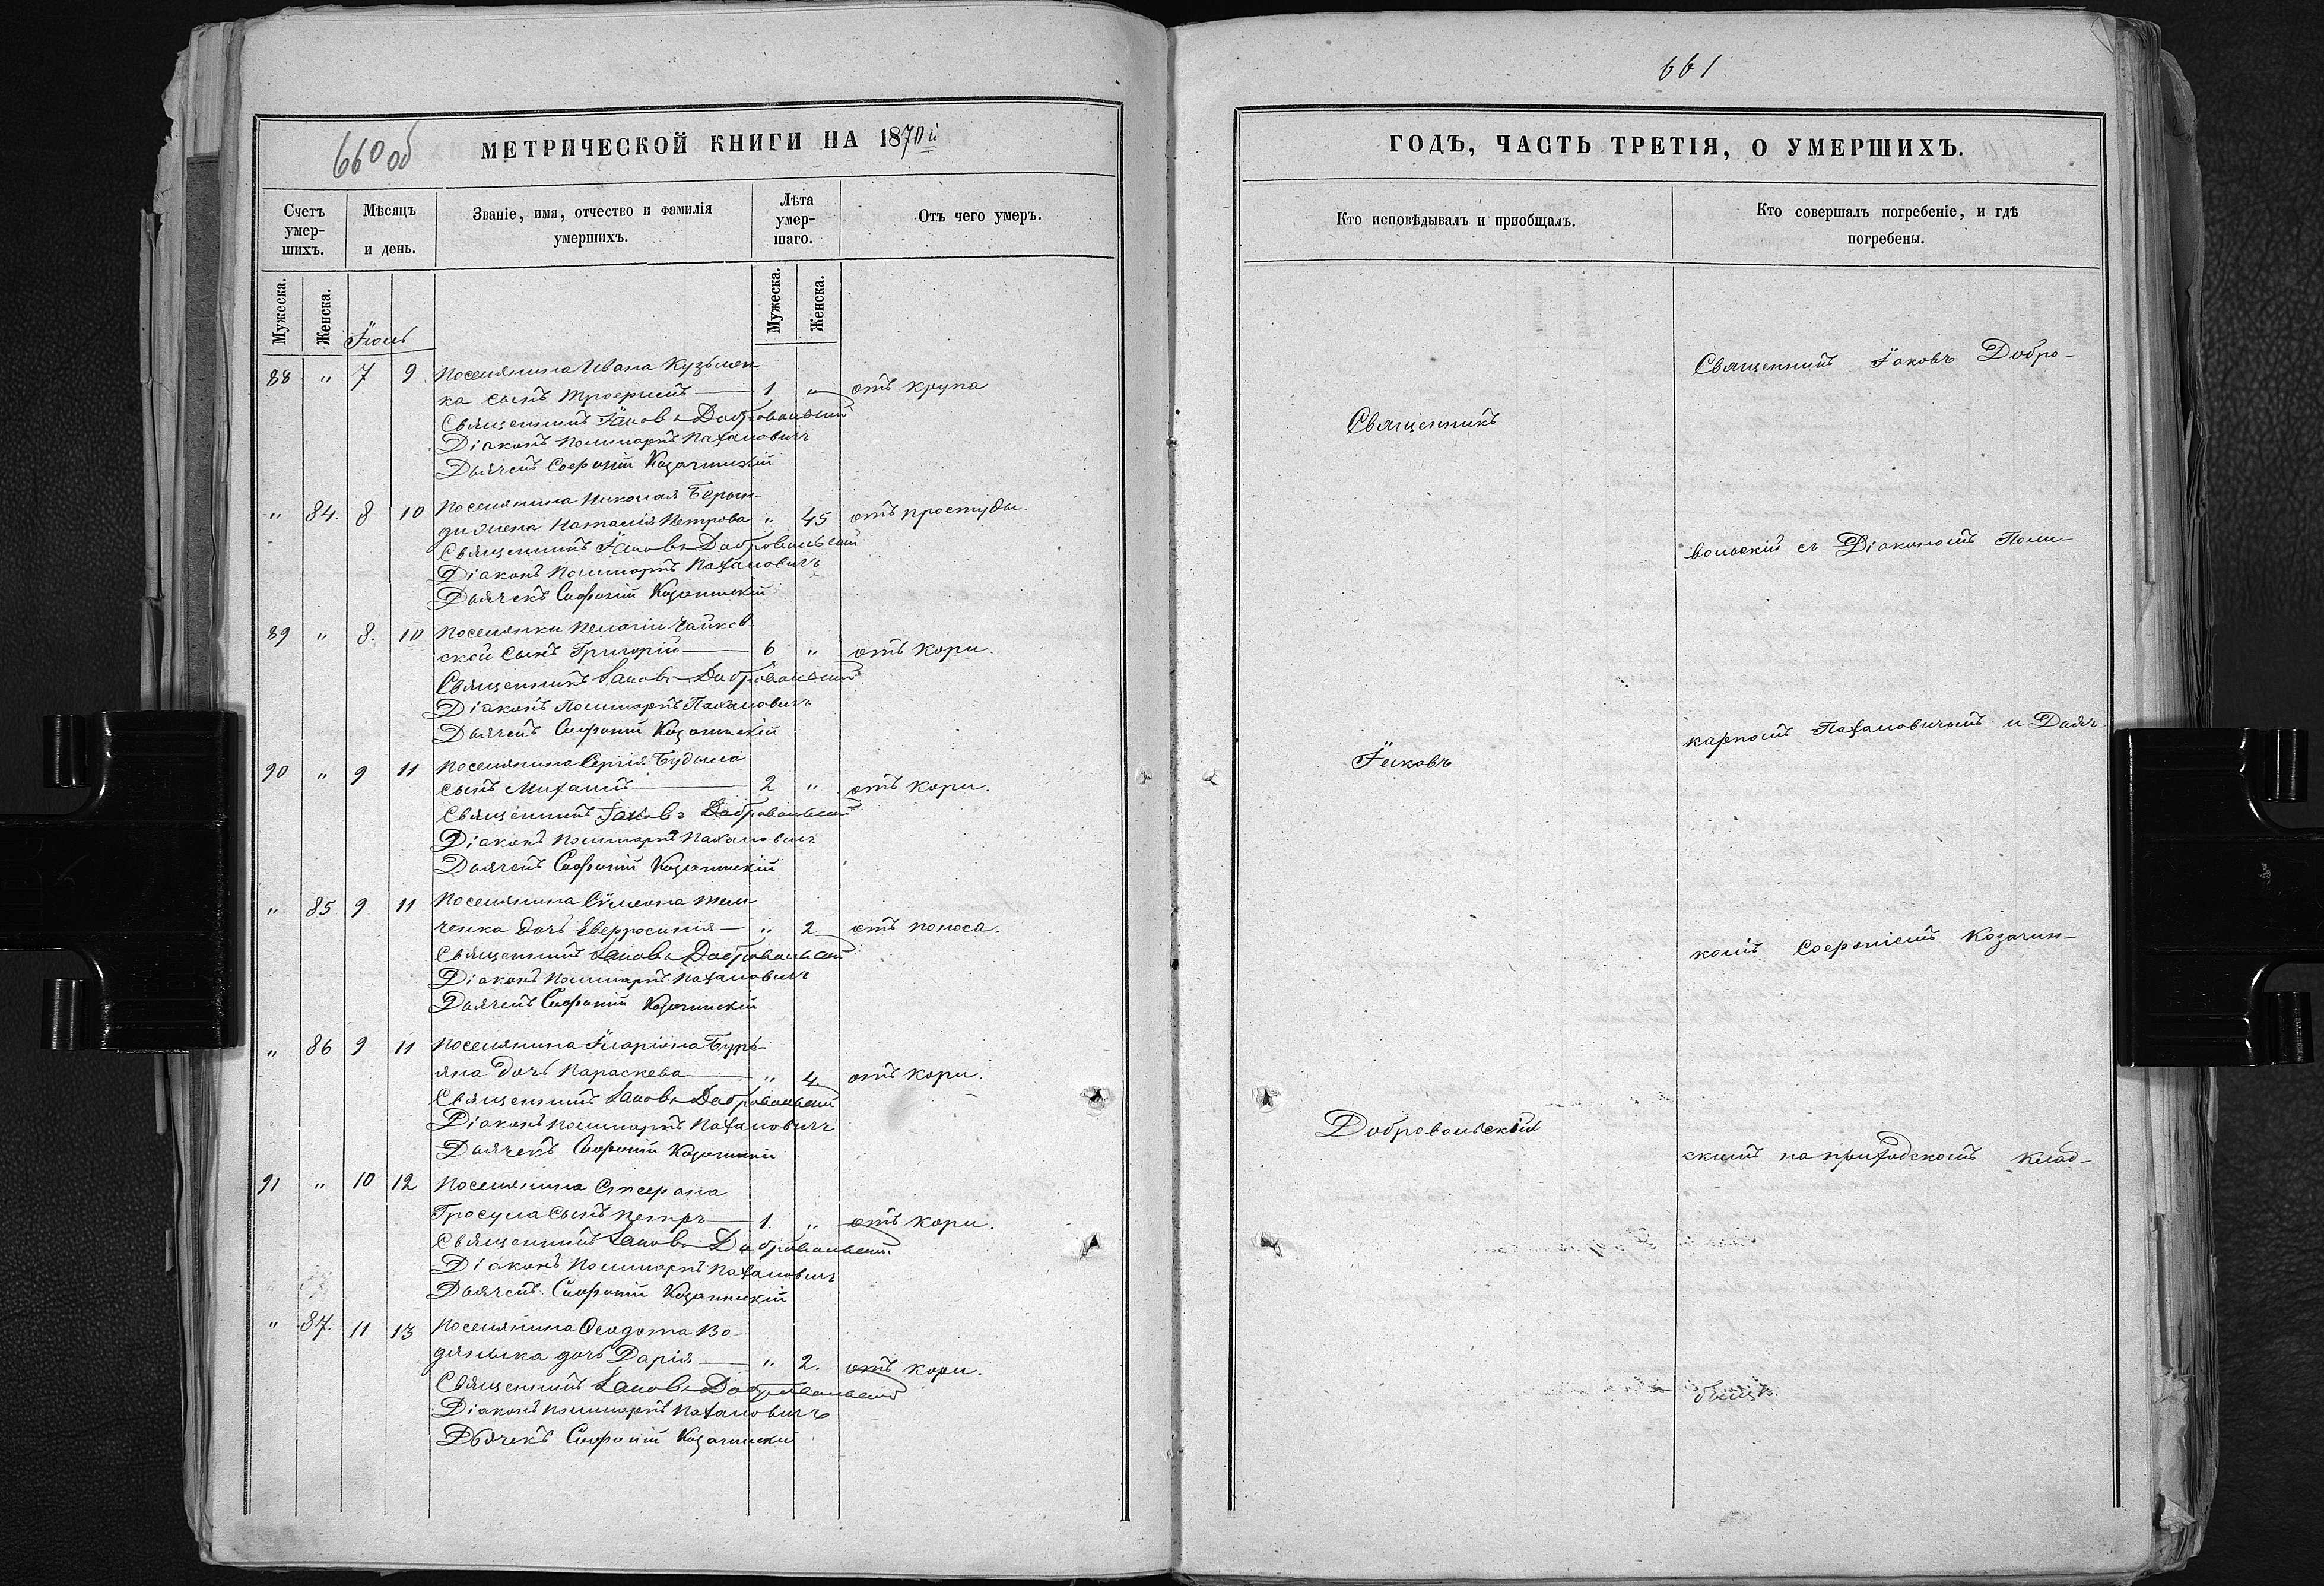 660 об
МЕТРИЧЕСКОЙ КНИГИ НА 1870й
Счетъ умер- шихъ.
Мѣсяцъ и день.
Званіе, имя, отчество и фамилія умершихъ.
Лѣта умер- шаго.
Отъ чего умеръ.
Мужеска.
Женска.
Мужеска.
Женска.
Іюль
88 " 7 9 Поселянина Ивана Кузьмен-
ка сынъ Трофимъ — 1 " отъ крупа
Священникъ Іаковъ Добровольскій
Діаконъ Поликарпъ Пахаловичъ
Дьячекъ Софроній Козачинскій
" 84. 8 10 Поселянина Николая Берын-
ди жена Наталія Петрова " 45 отъ простуды.
Священникъ Іаковъ Добровольскій
Діаконъ Поликарпъ Пахаловичъ
Дьячекъ Софроній Козачинскій
89 " 8. 10 Поселянки Пелагіи Чайков-
ской сынъ Григорій — 6 " отъ кори.
Священникъ Іаковъ Добровольскій
Діаконъ Поликарпъ Пахаловичъ
Дьячекъ Софроній Козачинскій
90 " 9 11 Поселянина Сергія
сынъ Михаилъ — 2 " отъ кори.
Священникъ Іаковъ Добровольскій
Діаконъ Поликарпъ Пахаловичъ
Дьячекъ Софроній Козачинскій
" 85 9 11 Поселянина Сѵмеона
ченка дочь Евфросинія — " 2 отъ поноса.
Священникъ Іаковъ Добровольскій
Діаконъ Поликарпъ Пахаловичъ
Дьячекъ Софроній Козачинскій
" 86 9 11 Поселянина Иларіона Бурь-
яна дочь Параскева — " 4 отъ кори.
Священникъ Іаковъ Добровольскій
Діаконъ Поликарпъ Пахаловичъ
Дьячекъ Софроній Козачинскій
91 " 10 12 Поселянина Стефана
Гросула сынъ Петръ — 1. " отъ кори.
Священникъ Іаковъ Добровольскій
Діаконъ Поликарпъ Пахаловичъ
Дьячекъ Софроній Козачинскій
" 87. 11 13 Поселянина Ѳеодота Во-
дяныка дочь Дарія — " 2. отъ кори.
Священникъ Іаковъ Добровольскій
Діаконъ Поликарпъ Пахаловичъ
Дьячекъ Софроній Козачинскій
661
ГОДЪ, ЧАСТЬ ТРЕТІЯ, О УМЕРШИХЪ.
Кто исповѣдывалъ и приобщалъ.
Кто совершалъ погребеніе, и гдѣ погребены.
Священникъ
Іаковъ
Добровольскій
Священникъ Іаковъ Добро-
вольскій съ Діакономъ Поли-
карпомъ Пахаловичемъ и Дьяч
комъ Софроніемъ Козачин-
скимъ на приходскомъ клад-
бищѣ.